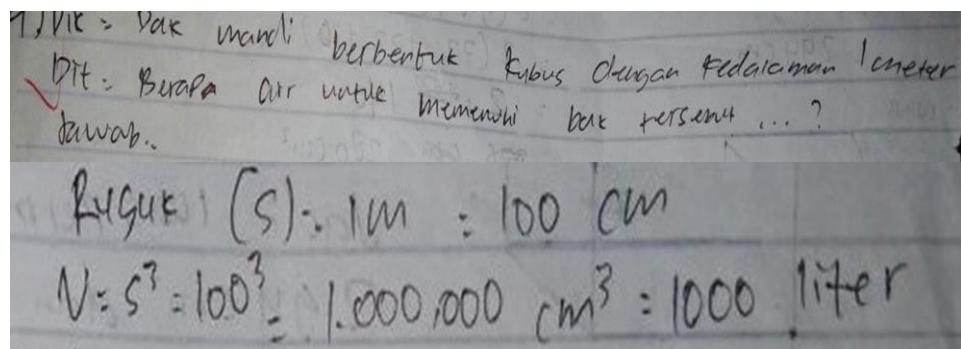 1) Dik = Bak mandi berbentuk kubus dengan kedalaman 1 meter
Dit : Berapa air untuk memenuhi bak tersebut ... ?
Jawab..
Rusuk (S) : 1m : 100 cm
V = S³ = 100³ = 1.000.000 cm³ = 1000 liter